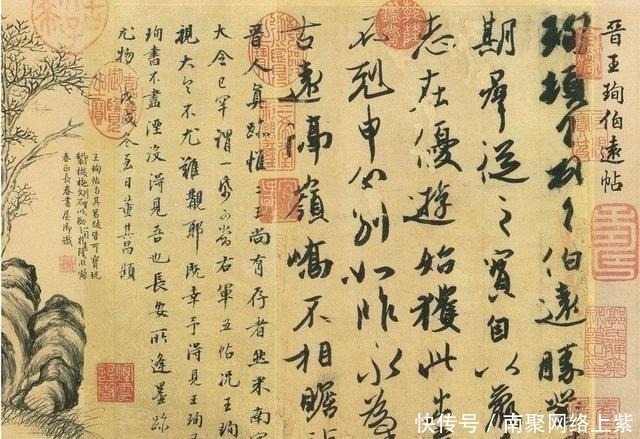 晉王珣伯遠帖
珣頓首頓首伯遠勝業
期羣從之寶自以羸
志在優遊始獲此出
不剋申分別如昨永為
古遠隔嶺嶠不相瞻臨
晉人真跡惟二王尚有存者然米南宮
大令已罕謂一紙可當右軍五帖況王珣
視大令不尤難覯耶既幸予得見王珣
珣書不盡湮沒得見吾也長安所逢墨跡
尤物戊戌冬至日董其昌題
王珣帖与其昌跋皆可寶玩
春正長春書屋御識
快传号 / 南聚网络上紫